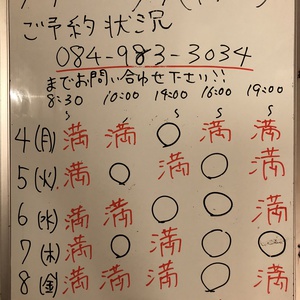 ご予約状況
084-983-3034
までお問い合わせ下さい!!
8:30 10:00 14:00 16:00 19:00
4(月) 満 満 ○ 満 満
5(火) 満 ○ 満 ○ 満
6(水) 満 満 ○ ○ 満
7(木) 満 ○ 満 ○ ○
8(金) 満 満 満 ○ 満